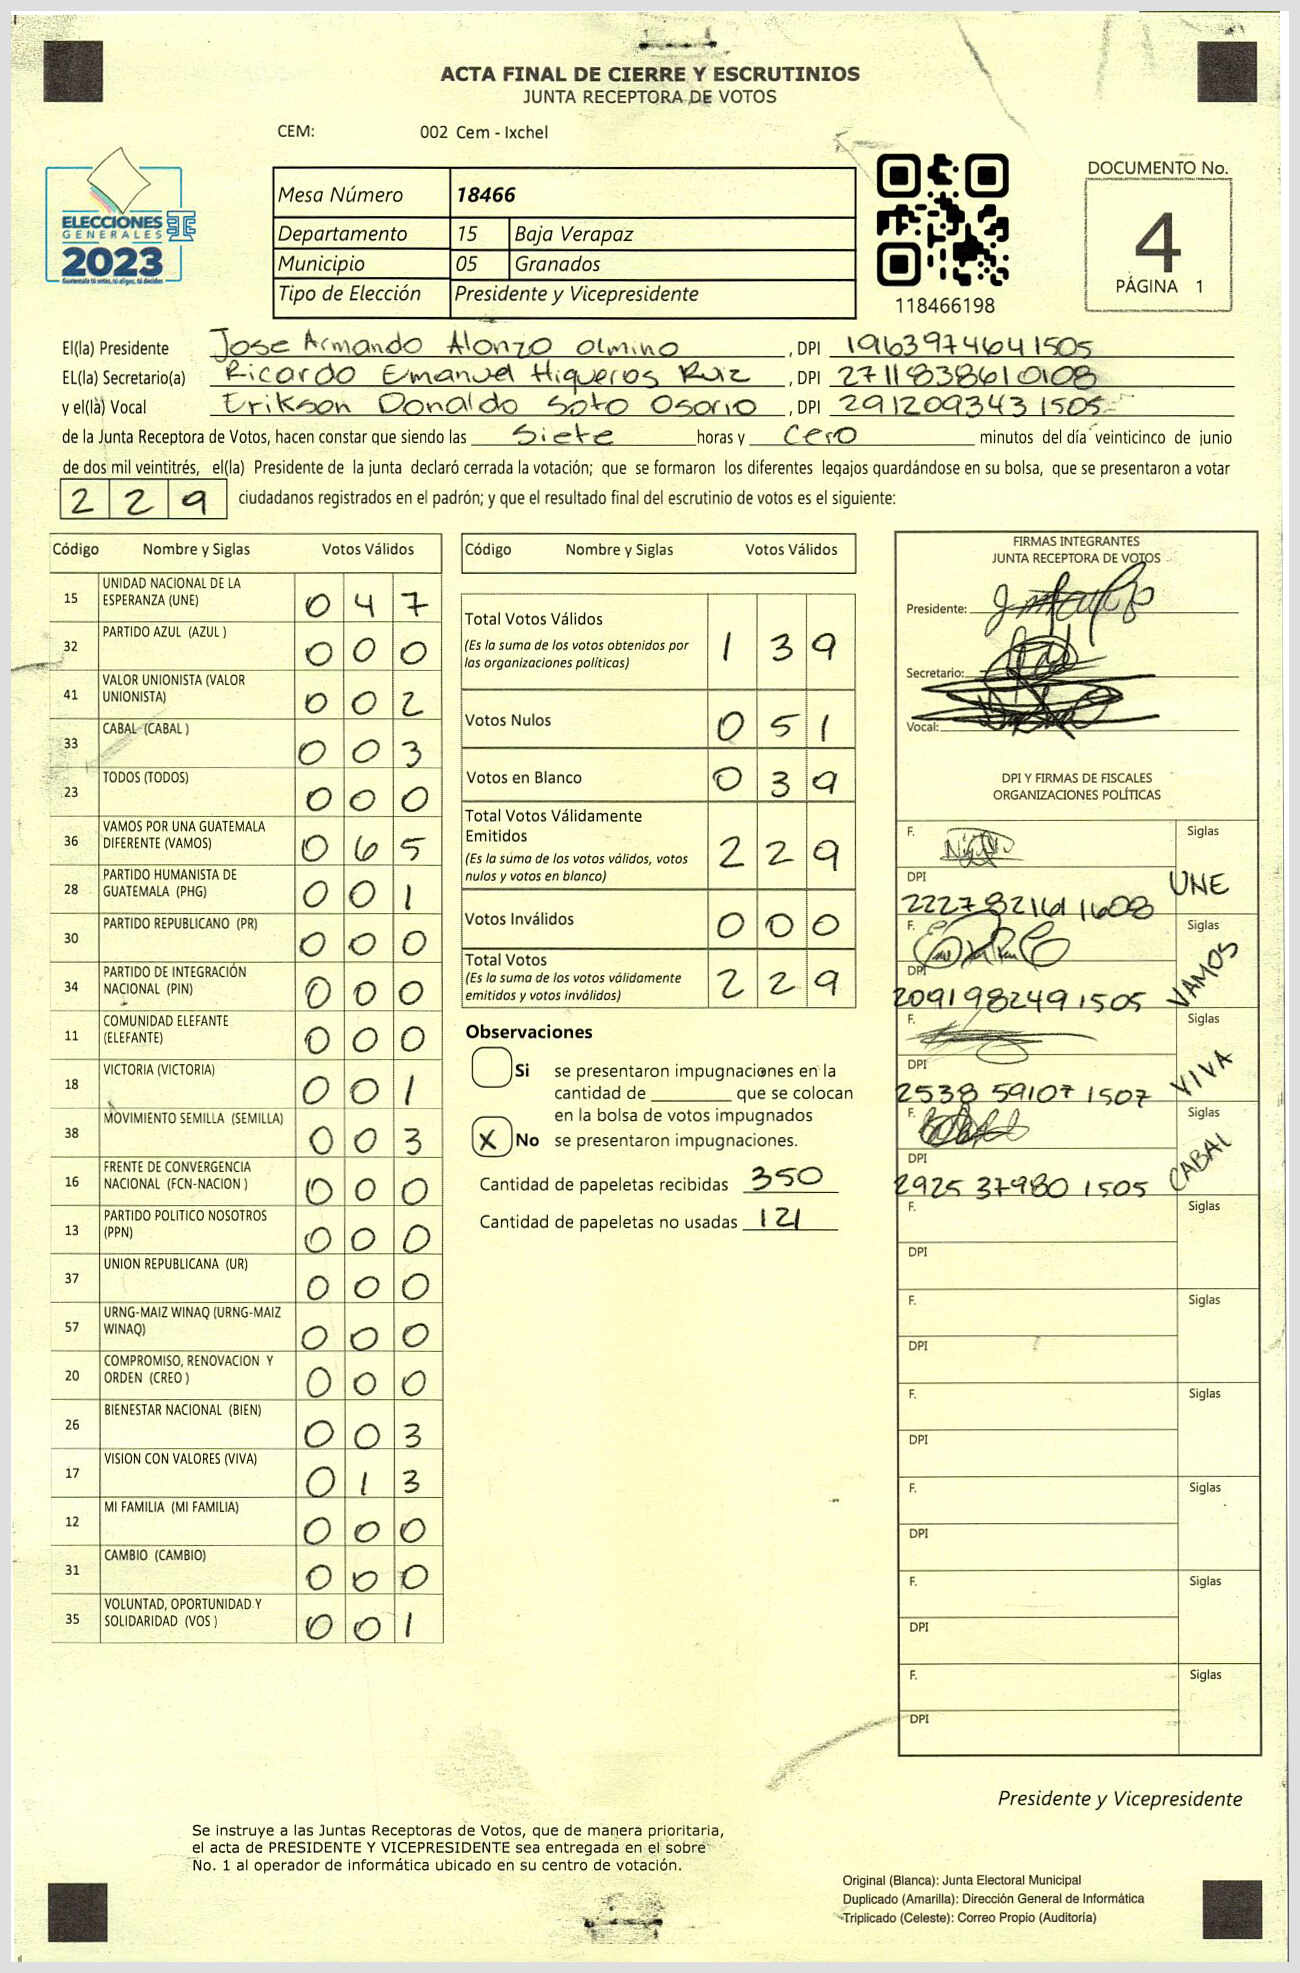 ACTA FINAL DE CIERRE Y ESCRUTINIOS
JUNTA RECEPTORA DE VOTOS
CEM: 002 Cem - Ixchel
ELECCIONES
GENERALES
2023
Guatemala tú votas, tú eliges, tú decides
Mesa Número 18466
Departamento 15 Baja Verapaz
Municipio 05 Granados
Tipo de Elección Presidente y Vicepresidente
118466198
DOCUMENTO No.
4
PÁGINA 1
El(la) Presidente Jose Armando Alonzo olmino, DPI 1963974641505
EL(la) Secretario(a) Ricardo Emanuel Higueros Ruiz, DPI 2711838610108
y el(la) Vocal Erikson Donaldo Soto Osorio, DPI 2912093431505
de la Junta Receptora de Votos, hacen constar que siendo las Siete horas y Cero minutos del día veinticinco de junio
de dos mil veintitrés, el(la) Presidente de la junta declaró cerrada la votación; que se formaron los diferentes legajos guardándose en su bolsa, que se presentaron a votar
229 ciudadanos registrados en el padrón; y que el resultado final del escrutinio de votos es el siguiente:
Código Nombre y Siglas Votos Válidos
15 UNIDAD NACIONAL DE LA ESPERANZA (UNE) 047
32 PARTIDO AZUL (AZUL ) 000
41 VALOR UNIONISTA (VALOR UNIONISTA) 002
33 CABAL (CABAL ) 003
23 TODOS (TODOS) 000
36 VAMOS POR UNA GUATEMALA DIFERENTE (VAMOS) 065
28 PARTIDO HUMANISTA DE GUATEMALA (PHG) 001
30 PARTIDO REPUBLICANO (PR) 000
34 PARTIDO DE INTEGRACIÓN NACIONAL (PIN) 000
11 COMUNIDAD ELEFANTE (ELEFANTE) 000
18 VICTORIA (VICTORIA) 001
38 MOVIMIENTO SEMILLA (SEMILLA) 003
16 FRENTE DE CONVERGENCIA NACIONAL (FCN-NACION ) 000
13 PARTIDO POLITICO NOSOTROS (PPN) 000
37 UNION REPUBLICANA (UR) 000
57 URNG-MAIZ WINAQ (URNG-MAIZ WINAQ) 000
20 COMPROMISO, RENOVACION Y ORDEN (CREO ) 000
26 BIENESTAR NACIONAL (BIEN) 003
17 VISION CON VALORES (VIVA) 013
12 MI FAMILIA (MI FAMILIA) 000
31 CAMBIO (CAMBIO) 000
35 VOLUNTAD, OPORTUNIDAD Y SOLIDARIDAD (VOS ) 001
Código Nombre y Siglas Votos Válidos
Total Votos Válidos 139
(Es la suma de los votos obtenidos por
las organizaciones políticas)
Votos Nulos 051
Votos en Blanco 039
Total Votos Válidamente
Emitidos 229
(Es la suma de los votos válidos, votos
nulos y votos en blanco)
Votos Inválidos 000
Total Votos 229
(Es la suma de los votos válidamente
emitidos y votos inválidos)
Observaciones
Si se presentaron impugnaciones en la
cantidad de ________ que se colocan
en la bolsa de votos impugnados
X No se presentaron impugnaciones.
Cantidad de papeletas recibidas 350
Cantidad de papeletas no usadas 121
FIRMAS INTEGRANTES
JUNTA RECEPTORA DE VOTOS
Presidente:
Secretario:
Vocal:
DPI Y FIRMAS DE FISCALES
ORGANIZACIONES POLÍTICAS
F. Siglas
DPI UNE
2227821611608
F. Siglas
DPI VAMOS
2091982491505
F. Siglas
DPI VIVA
2538 59107 1507
F. Siglas
DPI CABAL
2925 37980 1505
F. Siglas
DPI
F. Siglas
DPI
F. Siglas
DPI
F. Siglas
DPI
F. Siglas
DPI
F. Siglas
DPI
Presidente y Vicepresidente
Se instruye a las Juntas Receptoras de Votos, que de manera prioritaria,
el acta de PRESIDENTE Y VICEPRESIDENTE sea entregada en el sobre
No. 1 al operador de informática ubicado en su centro de votación.
Original (Blanca): Junta Electoral Municipal
Duplicado (Amarilla): Dirección General de Informática
Triplicado (Celeste): Correo Propio (Auditoría)